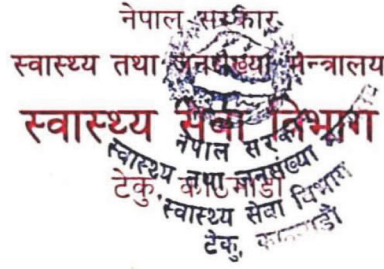 नेपाल सरकार
स्वास्थ्य तथा जनसंख्या मन्त्रालय
स्वास्थ्य सेवा विभाग
टेकु, काठमाडौं
नेपाल सरकार
स्वास्थ्य तथा जनसंख्या
स्वास्थ्य सेवा विभाग
टेकु, काठमाडौं